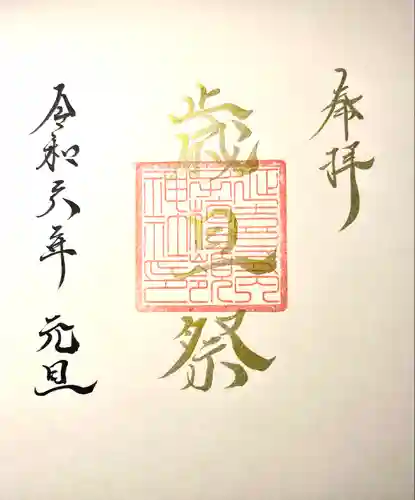 奉拝
歳旦祭
令和六年 元旦